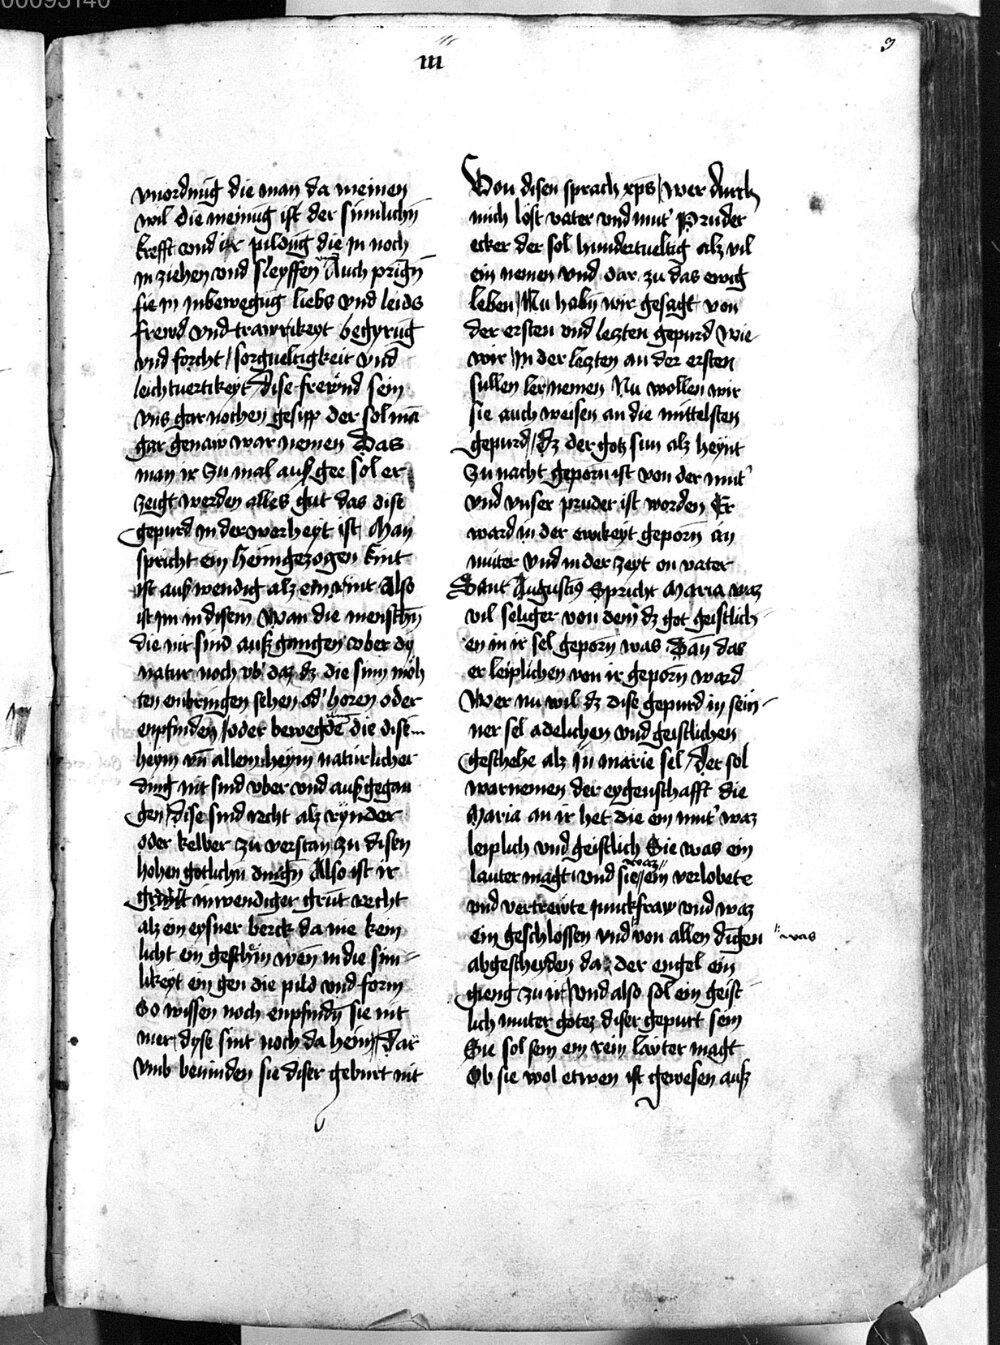 00093140
III
3
vnordnūg die man da meinen
wil die meinūg ist der sinnlichn̄
krefft vnd ir pildūg die jn noch
jn ziehen vnd sleyffen Auch prīgn̄
sie jn jnbewegūg liebs vnd leids
frewd vnd trawrikeyt begyrūg
vnd forcht / sorgueltigkeit vnd
leichtuertikeyt / dise frewnd sein
vns gar nochen gesipp der sol mā
gar genaw war nemen Das
man ir zu mal auß gee sol er
zeigt werden alles gut das dise
gepurd jn der worheyt ist Man
spricht ein heimgezogen kint
ist außwendig alz ein rint Also
ist jm in disem Wan die menschn̄
die nit sind auß gangen vber dy
natur noch vb' daz dz die sinn möh
ten einbringen sehen od' horen oder
enpfinden / oder bewegde die dise
heym vn̄ allem heym natürlicher
ding nit sind vber vnd auß gegan
gen / dise sind recht alz rynder
oder kelber zu verstan zu disen
hohen gotlichn̄ dingn̄ Also ist ir
inwendiger grūt recht
alz ein eysner berck da nie kein
licht ein geschīn wen̄ in die sīn
likeyt ein gen die pild vnd form
So wissen noch enpfindn̄ sie nit
mer / dyse sint noch da heim / dar
vmb beuinden sie diser geburt nit
Von disen sprach xp̄s / wer durch
mich lost vater vnd mut' Pruder
ecker der sol hundertueltig alz vil
ein nemen vnd dar zu das ewig
leben / Nu habn̄ wir gesagt von
der ersten vnd leczten gepurd wie
wir / jn der leczten an der ersten
sullen ler nemen Nu wollen wir
sie auch weisen an die mittelsten
gepurd / dz der gotz sun alz heynt
zu nacht geporn ist von der mut'
vnd vnser pruder ist worden Er
ward in der ewikeyt geporn̄ an
muter vnd in der zeyt on vater
Sant Augustin̄ spricht Maria waz
vil seliger von dem dz got geistlich
en in ir sel geporn̄ was Dan̄ das
er leiplichen von ir geporn̄ ward
Wer nu wil dz dise gepurd in sein
ner sel adelichen vnd geistlichen
geschehe alz jn marie sel / der sol
warnemen der eygenschafft die
Maria an ir het die ein mut' waz
leiplich vnd geistlich Sie was ein
waz
lauter magt vnd sie ein verlobete
vnd vertrewte junckfraw vnd waz
ein geschlossen vnd von allen dīgen
was
abgescheyden da der engel ein
gieng zu ir / vnd also sol ein geist
lich muter gotez diser gepurt sein
Sie sol sein ein rein lauter magt
Ob sie wol etwen ist gewesen auß